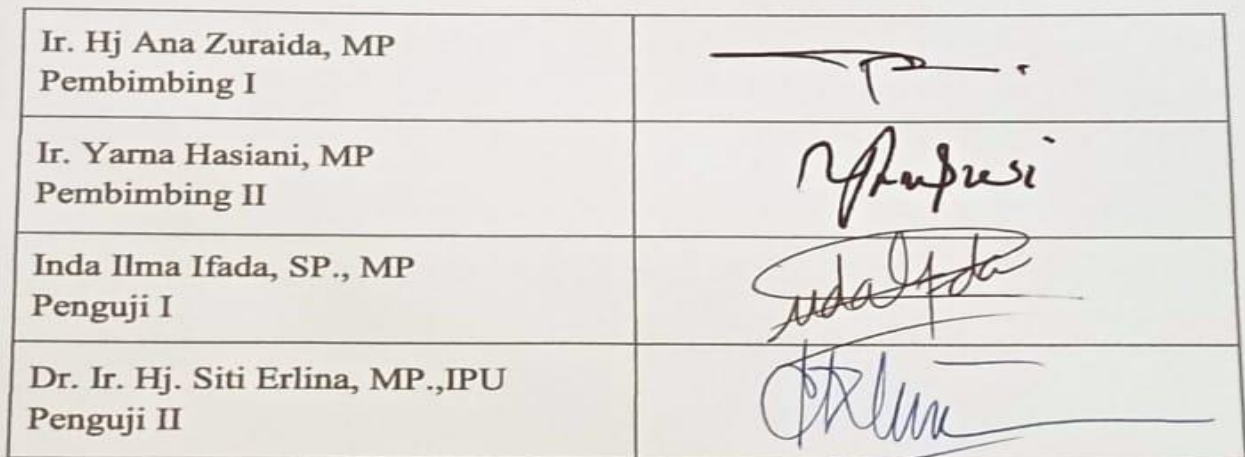 Ir. Hj Ana Zuraida, MP
Pembimbing I
Ir. Yarna Hasiani, MP
Pembimbing II
Inda Ilma Ifada, SP., MP
Penguji I
Dr. Ir. Hj. Siti Erlina, MP.,IPU
Penguji II